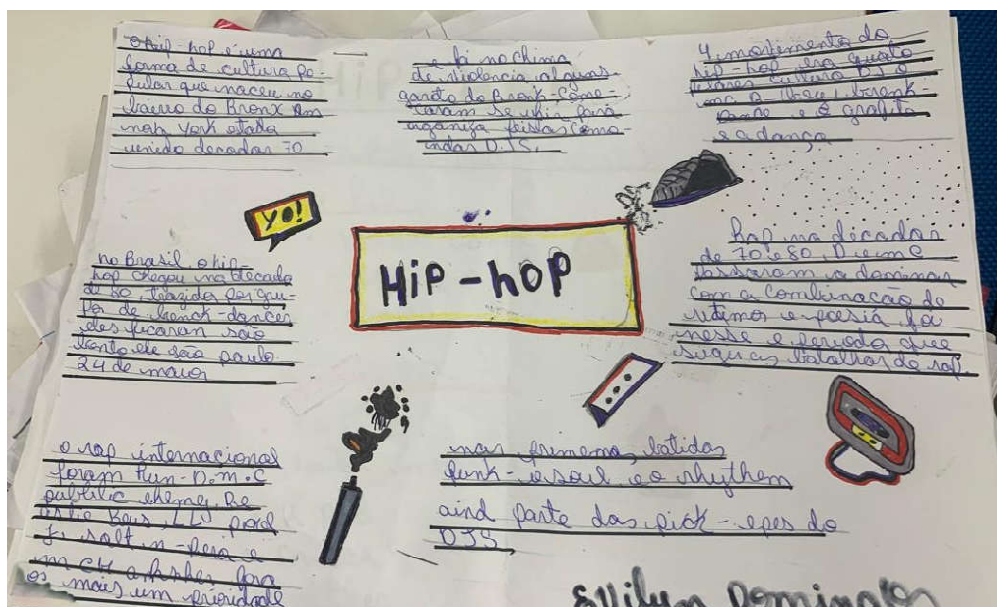 O hip-hop é uma
forma de cultura po-
pular que naceu no
bairro do Bronx em
York estado
unido decadas 70
e lá no clima
de violencia alguns
garoto do Bronk-Come-
caram se unir para
organiza feistas como
DJS.
4 movimento do
hip-hop era quato
pilares cultura DJ o
e o grafite
e a dança
YO!
HiP-hOP
no Brasil o hip-
hop chegou na decada
de 80, tragidos por gru-
po de brenck-dances
des ficaran são
bento ele são paulo
24 de maior
hap na dicadas
de 70 e 80. D e um C
passaram a dominar
com a combinacão de
ritimos e poesia foi
nesse e periodo que
batalhas de rap.
o rap internacional
foram Run-D.m.C
public enemy, Be
Boys, LL
J, salt n-pera e
m c4
os mais um prioridade
nas primema batidas
funk-e soul e o rhythem
aind parte das pick-epes do
DJS